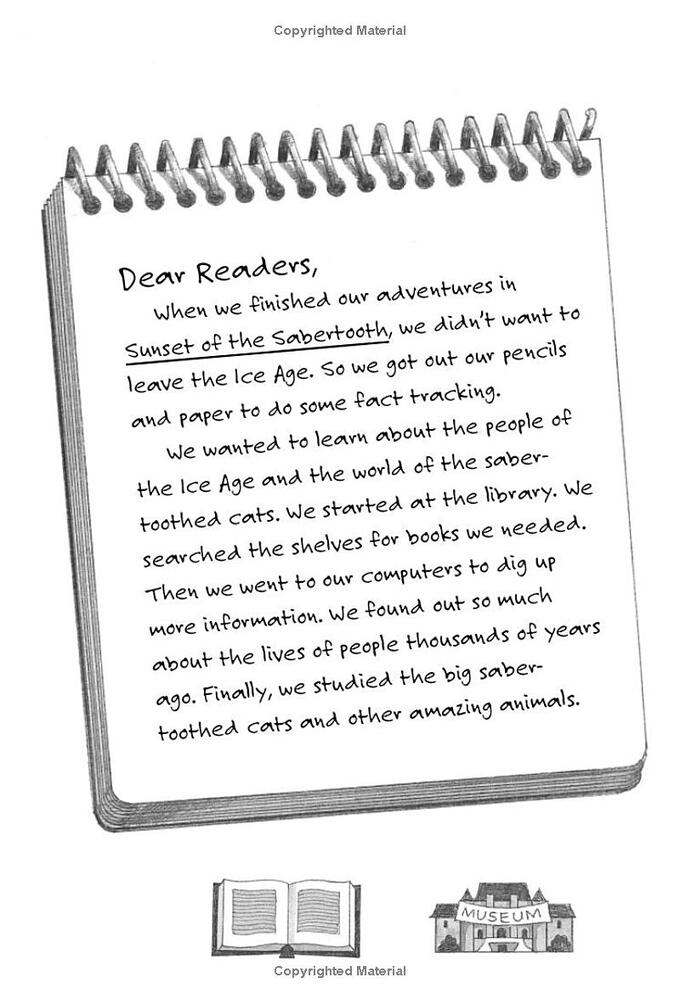 Copyrighted Material
Dear Readers,
When we finished our adventures in
Sunset of the Sabertooth, we didn't want to
leave the Ice Age. So we got out our pencils
and paper to do some fact tracking.
We wanted to learn about the people of
the Ice Age and the world of the saber-
toothed cats. We started at the library. We
searched the shelves for books we needed.
Then we went to our computers to dig up
more information. We found out so much
about the lives of people thousands of years
ago. Finally, we studied the big saber-
toothed cats and other amazing animals.
MUSEUM
Copyrighted Material